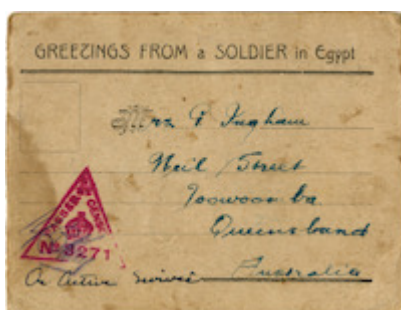 GREETINGS FROM a SOLDIER in Egypt
Mrs F Ingham
Neil Street
Toowoomba
Queensland
Australia
PASSED BY CENSOR
No 3271
On Active Service